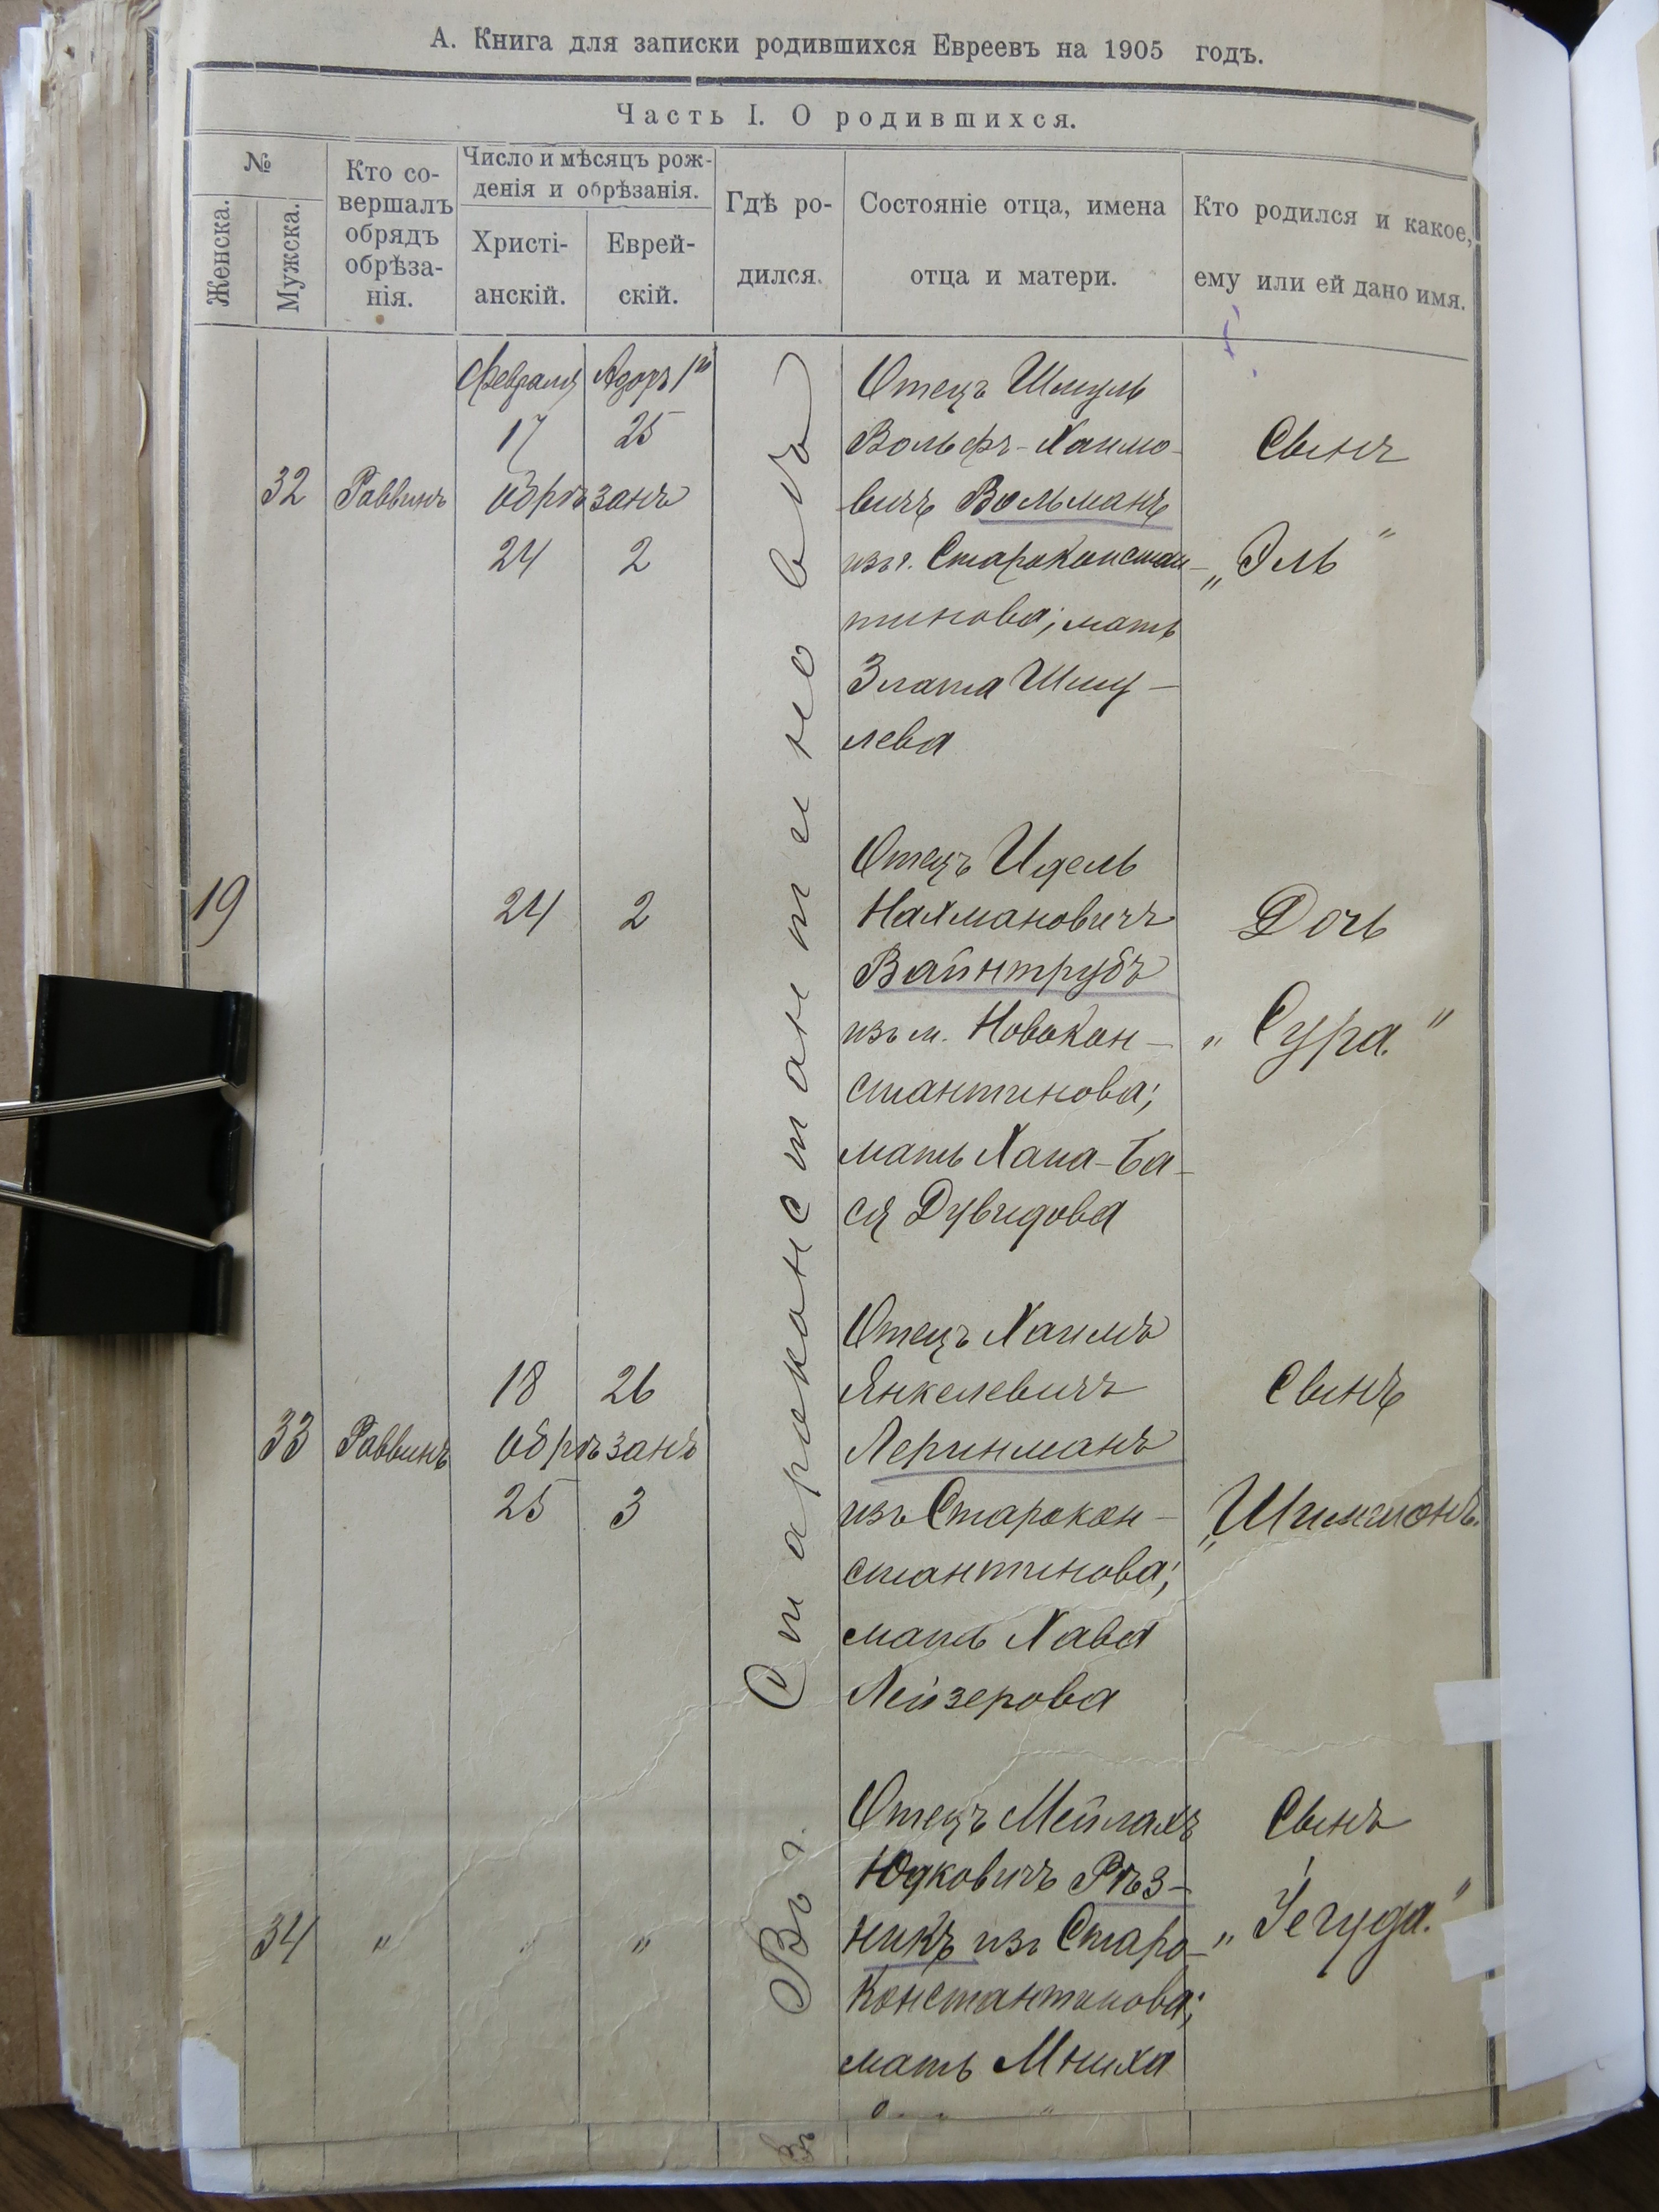 А. Книга для записки родившихся Евреевъ на 1905 годъ.
Часть I. О родившихся.
№
Женска.
Мужска.
Кто со-
вершалъ
обрядъ
обрѣза-
нія.
Число и мѣсяцъ рож-
денія и обрѣзанія.
Христі-
анскій.
Еврей-
скій.
Гдѣ ро-
дился.
Состояніе отца, имена
отца и матери.
Кто родился и какое,
ему или ей дано имя.
Въ г. Староконстантиновѣ
32
Раввинъ
Февраля Адоръ 1го
17 25
обрѣзанъ
24 2
Отецъ Шмуль
Вольфъ-Хаимо-
вичъ Вольманъ
изъ г. Староконстан-
тинова; мать
Злата Шму-
лева
Сынъ
„Эль"
19
24 2
Отецъ Идель
Нахмановичъ
Вайнтрубъ
изъ м. Новокон-
стантинова;
мать Хана-Ба-
ся Дувидова
Дочь
„Сура."
33
Раввинъ
18 26
обрѣзанъ
25 3
Отецъ Хаимъ
Янкелевичъ
Леринманъ
изъ Старокон-
стантинова;
мать Хава
Лейзерова
Сынъ
„Шимшонъ.
34
" " "
Отецъ Мейлахъ
Юдковичъ Рѣз-
никъ изъ Старо-
константинова;
мать Мниха
Сынъ
„Іегуда."
Въ